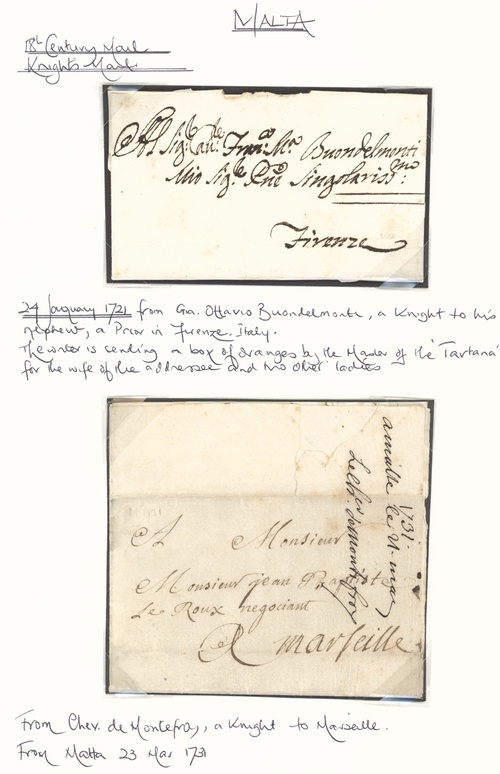 MALTA
18th Century Mail
Knights Mail
Al Sig:re Cau:re Fran:co Ma Buondelmonti
Mio Sig:re Pne Singolariss:mo
Firenze
24 January 1721 from Gia. Ottavio Buondelmonti, a Knight to his
nephew, a Prior in Firenze, Italy.
The writer is sending a box of oranges by the Master of the 'Tartana'
for the wife of the addressee and two other ladies
1731
amalte le 21 mar
Le Ch. de Montefroy
A Monsieur
Monsieur jean Baptiste
Le Roux negociant
A marseille
From Chev. de Montefroy, a Knight to Marseille.
From Malta 23 Mar 1731